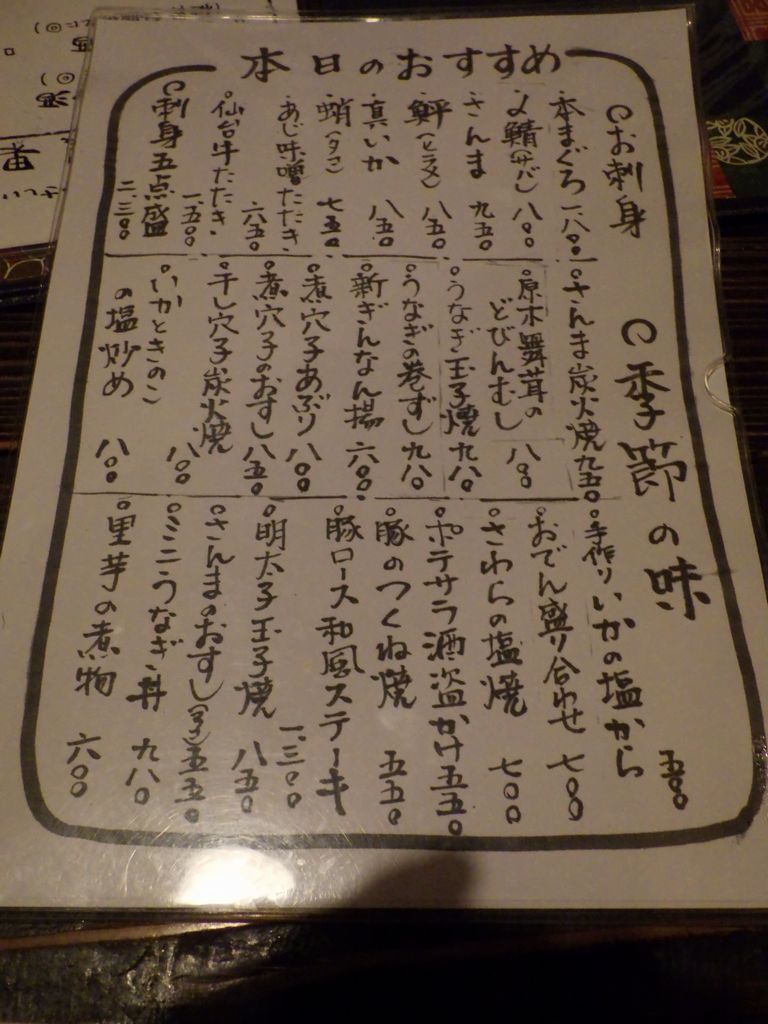 本日のおすすめ
お刺身
本まぐろ 一、八〇〇
〆鯖(サバ) 八〇〇
さんま 九五〇
鮃(ヒラメ) 八五〇
真いか 八五〇
蛸(タコ) 七五〇
あじ味噌たたき 六五〇
仙台牛たたき 一、五〇〇
刺身五点盛 二、三〇〇
季節の味
さんま炭火焼 九五〇
原木舞茸の
どびんむし 八〇〇
うなぎ玉子焼 九八〇
うなぎの巻ずし 九八〇
新ぎんなん揚 六〇〇
煮穴子あぶり 八〇〇
煮穴子のおすし 八五〇
干し穴子炭火焼 八〇〇
いかときのこ
の塩炒め 八〇〇
手作りいかの塩から 五〇〇
おでん盛り合わせ 七〇〇
さわらの塩焼 七〇〇
ポテサラ酒盗かけ 五五〇
豚のつくね焼 五五〇
豚ロース和風ステーキ 一、三〇〇
明太子玉子焼 八五〇
さんまのおすし 五五〇
ミニうなぎ丼 九八〇
里芋の煮物 六〇〇